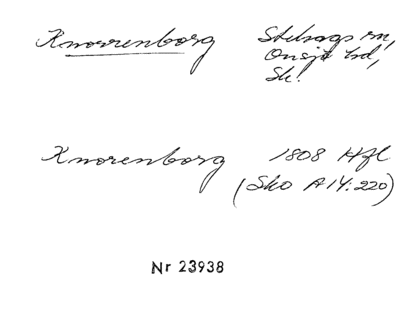 Knorrenborg Stehags sn,
Onsjö hd,
Sk!
Knorenborg 1808 Hfl
(Sko A IV:220)
Nr 23938